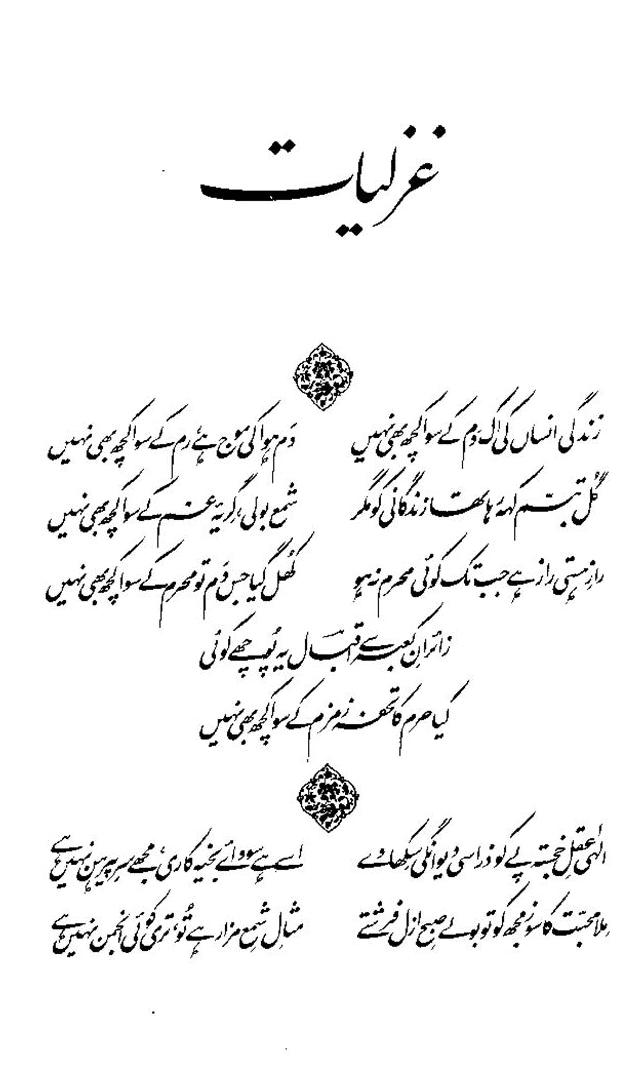 غزلیات
زندگی انساں کی اک دم کے سوا کچھ بھی نہیں دم ہوا کی موج ہے، رم کے سوا کچھ بھی نہیں
گل تبسم کہہ رہا تھا زندگانی کو مگر شمع بولی، گریۂ غم کے سوا کچھ بھی نہیں
رازِ ہستی راز ہے جب تک کوئی محرم نہ ہو کھل گیا جس دم تو محرم کے سوا کچھ بھی نہیں
زائرانِ کعبہ سے اقبال یہ پوچھے کوئی
کیا حرم کا تحفہ زمزم کے سوا کچھ بھی نہیں
الٰہی عقلِ خجستہ پے کو ذرا سی دیوانگی سکھا دے اسے ہے سودائے بخیہ کاری، مجھے سرِ پیرہن نہیں ہے
ملا محبت کا سوز مجھ کو تو بولے صبحِ ازل فرشتے مثالِ شمعِ مزار ہے تو، تری کوئی انجمن نہیں ہے